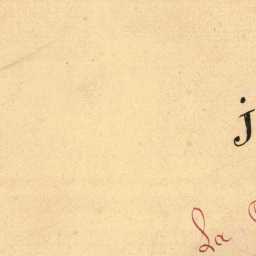 j
La